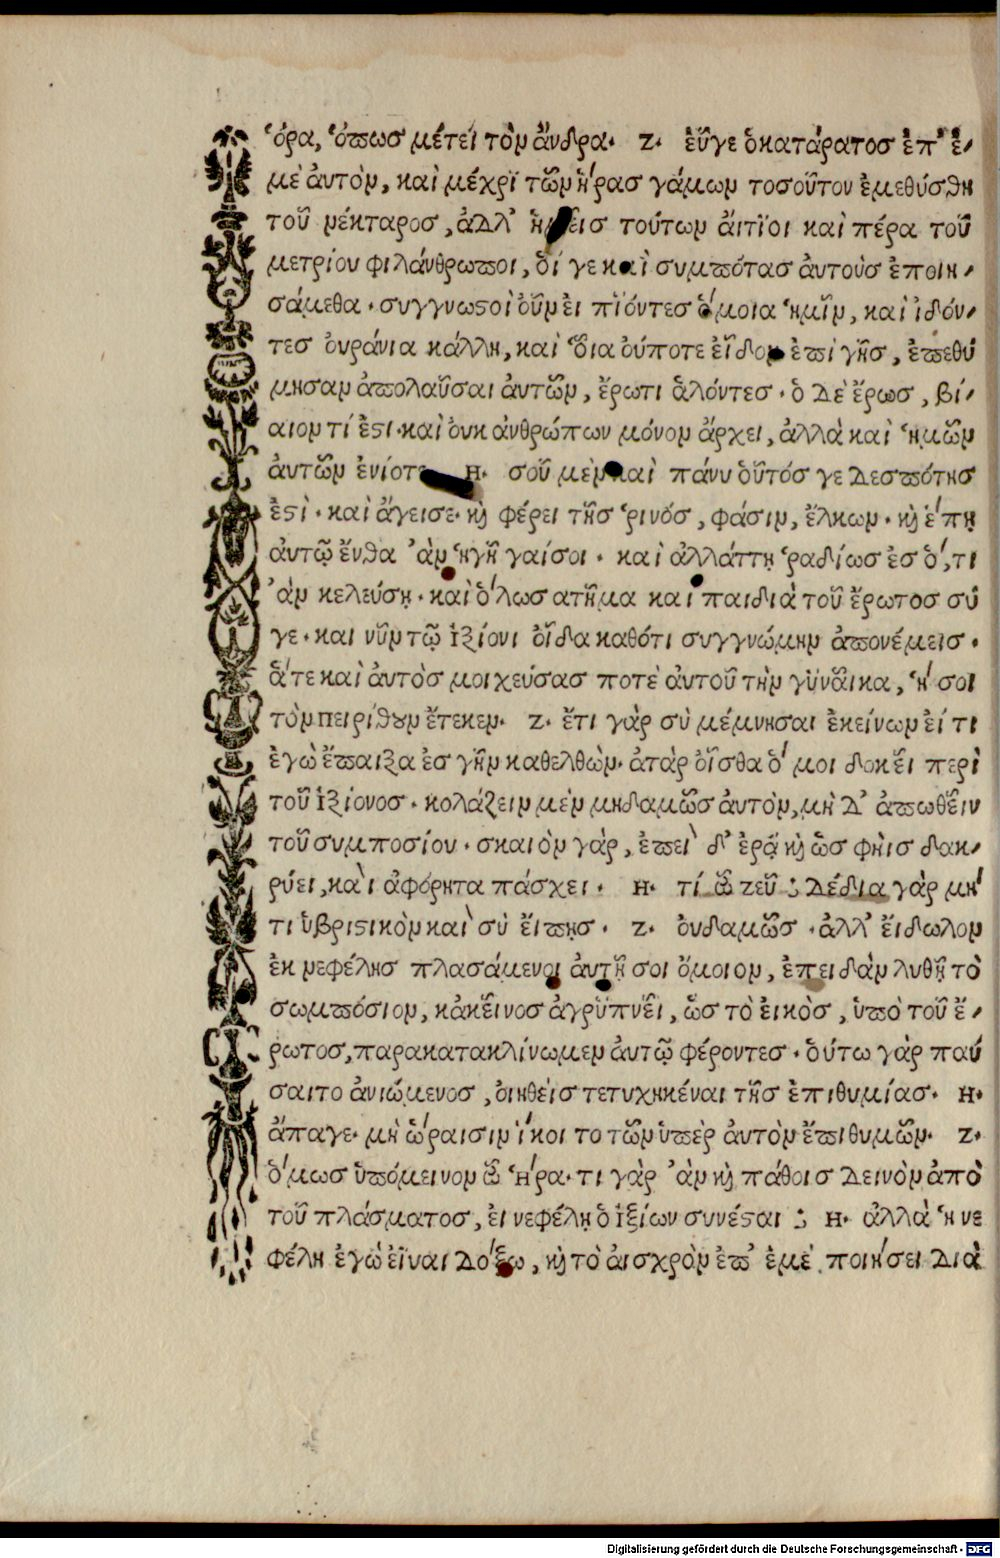 ὅρα, ὅπως μέτει τὸν ἄνδρα. Ζ. ἐῦγε ὁκατάρατος ἐπ' ἐ-
μὲ ἀυτὸν, καὶ μέχρϊ τῶν ἥρας γάμων τοσοῦτον ἐμεθύσθη
τοῦ νέκταρος, ἀλλ' τούτων ἄιτϊοι καὶ πέρα τοῦ
μετρίου φιλάνθρωποι, ὅι γε καὶ συμπότας ἀυτοὺς ἐποιη-
σάμεθα. συγγνωϛοὶ ὀῦν ἐι πϊόντες ὅμοια ἡμῖν, καὶ ἰδόν-
τες ὀυράνια κάλλη, καὶ ὅια ὀύποτε ἐῖδον ἐπὶ γῆς, ἐπεθύ
μησαν ἀπολαῦσαι ἀυτῶν, ἔρωτι ἁλόντες. ὁ δὲ ἔρως, βί-
αιον τί ἐϛι. καὶ ὀυκ ἀνθρώπων μόνον ἄρχει, ἀλλὰ καὶ ἡμῶν
ἀυτῶν ἐνίοτε Η. σοῦ μὲν καὶ πάνυ ὁῦτός γε δεσπότης
ἐϛὶ. καὶ ἄγεισε. κỳ φέρει τῆς ῥινὸς, φάσιν, ἕλκων. κỳ ἕπη
ἀυτῷ ἔνθα ἂν ἡγῆ γαίσοι. καὶ ἀλλάττῃ ῥαδίως ἐς ὅ, τι
ἂν κελεύσῃ. καὶ ὅλως ατῆμα καὶ παιδιὰ τοῦ ἔρωτος σύ
γε. και νῦν τῷ ἰξίονι ὀῖδα καθότι συγγνώμην ἀπονέμεις.
ἅτε καὶ ἀυτὸς μοιχεύσας ποτὲ ἀυτοῦ τὴν γϋνᾶικα, ἥ σοι
τὸν πειρίθουν ἔτεκεν. Ζ. ἔτι γὰρ σὺ μέμνησαι ἐκείνων ἐί τι
ἐγὼ ἔπαιξα ἐς γῆν καθελθὼν. ἀτὰρ ὀῖσθα ὅ μοι δοκεῖ περὶ
τοῦ ἰξίονος. κολάζειν μὲν μηδαμῶς ἀυτὸν, μὴ δ' ἀπωθεῖν
τοῦ συμποσίου. σκαιὸν γὰρ, ἐπεὶ δ' ἐρᾷ κỳ ὥς φὴις δακ-
ρύει, καὶ ἀφόρητα πάσχει. Η. τί ὦ ζεῦ ; δέδια γὰρ μή
τι ὑβριϛικὸν καὶ σὺ ἔιπῃς. Ζ. ὀυδαμῶς. ἀλλ' ἔιδωλον
ἐκ νεφέλης πλασάμενοι ἀυτῇ σοι ὅμοιον, ἐπειδὰν λυθῇ τὸ
σωμπόσιον, κἀκεῖνος ἀγρϋπνεῖ, ὥς τὸ ἐικὸς, ὑπὸ τοῦ ἔ-
ρωτος, παρακατακλίνωμεν ἀυτῷ φέροντες. ὁύτω γὰρ παύ
σαιτο ἀνιώμενος, ὀιηθὲις τετυχηκέναι τῆς ἐπιθυμίας. Η.
ἄπαγε. μὴ ὥραισιν ἵκοι το τῶν ὑπὲρ ἀυτὸν ἔπιθυμῶν. Ζ.
ὅμως ὑπόμεινον ὦ ἥρα. τι γὰρ ἂν κỳ πάθοις δεινὸν ἀπὸ
τοῦ πλάσματος, ἐι νεφέλῃ ὁ ἰξίων συνέϛαι ; Η. ἀλλὰ ἡ νε
φέλη ἐγὼ ἐῖναι δόξω, κỳ τὸ ἀισχρὸν ἐπ' ἐμὲ ποιήσει διὰ
Digitalisierung gefördert durch die Deutsche Forschungsgemeinschaft - DFG